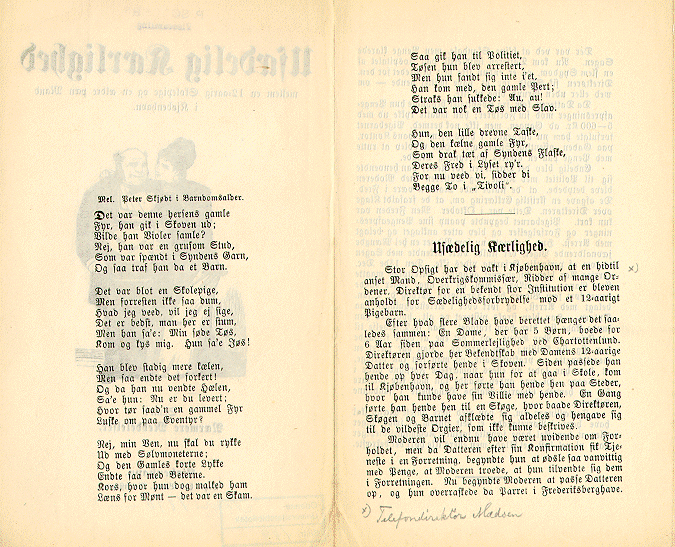 Mel. Peter Skjødt i Barndomsalder.
Det var denne hersens gamle
Fyr, han gik i Skoven ud;
Vilde han Violer samle?
Nej, han var en grusom Slud,
Som var spændt i Syndens Garn,
Og saa traf han da et Barn.
Det var blot en Skolepige,
Men forresten ikke saa dum,
Hvad jeg veed, vil jeg ej sige,
Det er bedst, man her er stum,
Men han sa'e: Min søde Tøs,
Kom og kys mig. Hun sa'e Jøs!
Han blev stadig mere kælen,
Men saa endte det forkert!
Og da han nu vendte Hælen,
Sa'e hun: Nu er du levert;
Hvor tør saad'n en gammel Fyr
Luske om paa Eventyr?
Nej, min Ven, nu skal du rykke
Ud med Sølvmoneterne;
Og den Gamles korte Lykke
Endte saa med Beterne.
Kors, hvor hun dog malked ham
Læns for Mønt — det var en Skam.
Saa gik han til Politiet,
Tøsen hun blev arrestert,
Men hun fandt sig inte i'et,
Han kom med, den gamle Pert;
Straks han sukkede: Au, au!
Det var nok en Tøs med Slav.
Hun, den lille drevne Taske,
Og den kælne gamle Fyr,
Som drak tæt af Syndens Flaske,
Deres Fred i Lyset ry'r.
For nu veed vi, sidder di
Begge To i „Tivoli".
Usædelig Kærlighed.
Stor Opsigt har det vakt i Kjøbenhavn, at en hidtil x)
anset Mand, Overkrigskommissær, Ridder af mange Or-
dener, Direktør for en bekendt stor Institution er bleven
anholdt for Sædelighedsforbrydelse mod et 12-aarigt
Pigebarn.
Efter hvad flere Blade have berettet hænger det saa-
ledes sammen: En Dame, der har 5 Børn, boede for
6 Aar siden paa Sommerlejlighed ved Charlottenlund.
Direktøren gjorde her Bekendtskab med Damens 12-aarige
Datter og forførte hende i Skoven. Siden passede han
hende op hver Dag, naar hun for at gaa i Skole, kom
til Kjøbenhavn, og her førte han hende hen paa Steder,
hvor han kunde have sin Villie med hende. En Gang
førte han hende hen til en Skøge, hvor baade Direktøren,
Skøgen og Barnet afklædte sig aldeles og hengave sig
til de vildeste Orgier, som ikke kunne beskrives.
Moderen vil endnu have været uvidende om For-
holdet, men da Datteren efter sin Konfirmation fik Tje-
neste i en Forretning, begyndte hun at ødsle saa vanvittig
med Penge, at Moderen troede, at hun tilvendte sig dem
i Forretningen. Nu begyndte Moderen at passe Datteren
op, og hun overraskede da Parret i Frederiksberghave.
x) Telefondirektør Madsen